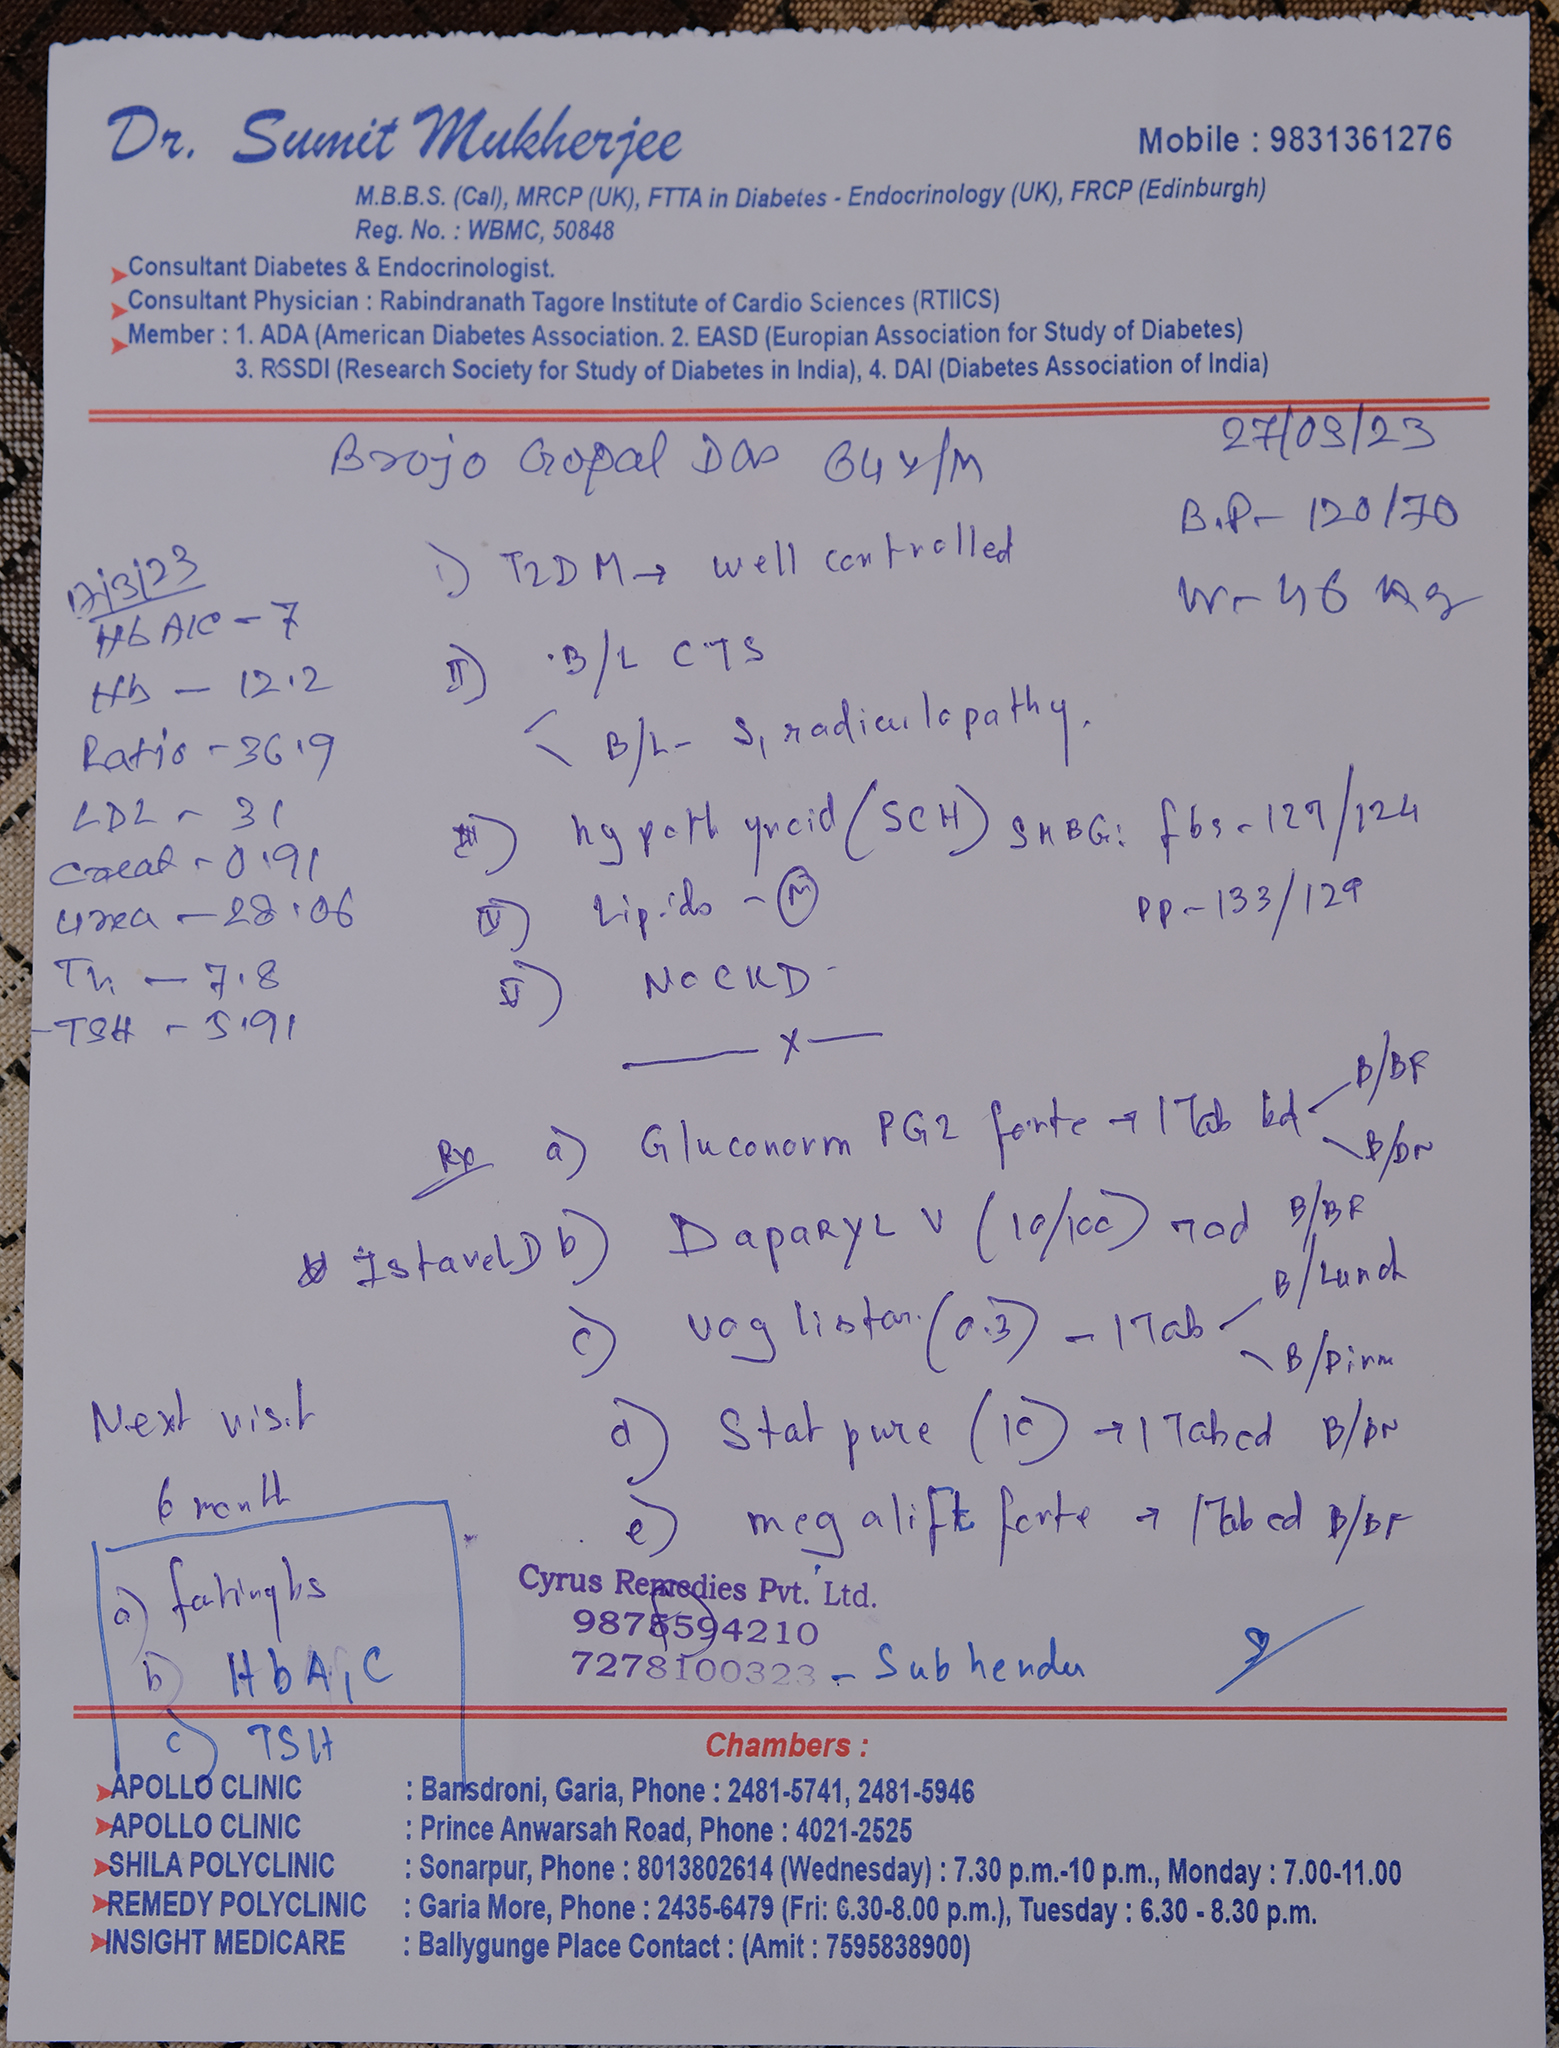 Dr. Sumit Mukherjee
Mobile : 9831361276
M.B.B.S. (Cal), MRCP (UK), FTTA in Diabetes - Endocrinology (UK), FRCP (Edinburgh)
Reg. No. : WBMC, 50848
Consultant Diabetes & Endocrinologist.
Consultant Physician : Rabindranath Tagore Institute of Cardio Sciences (RTIICS)
Member : 1. ADA (American Diabetes Association. 2. EASD (Europian Association for Study of Diabetes)
3. RSSDI (Research Society for Study of Diabetes in India), 4. DAI (Diabetes Association of India)
27/09/23
Brojo Gopal Das 64y/M
B.P- 120/70
W- 46 kg
17/3/23
HbA1C - 7
Hb - 12.2
Ratio - 36.9
LDL - 31
Creat - 0.91
Urea - 28.06
- 7.8
-TSH - 5.91
i) T2DM → well controlled
II) B/L CTS
< B/L - S1 radiculopathy.
III) hypothyroid (SCH)
SMBG: fbs - 127/124
PP - 133/129
IV) Lipids - (N)
V) No CKD
—— x ——
Rx a) Gluconorm PG2 forte → 1 Tab bd B/BF
B/DN
Istavel D b) DapaRYL V (10/100) → od B/BF
c) Voglistar (0.3) - 1 Tab B/Lunch
B/Dinn
d) Stat pure (10) → 1 Tab od B/DN
e) megalift forte → 1 Tab od B/BF
Next visit
6 month
a) fasting bs
b) HbA1C
c) TSH
Cyrus Remedies Pvt. Ltd.
9875594210
7278100323 - Subhendu
Chambers :
APOLLO CLINIC : Bansdroni, Garia, Phone : 2481-5741, 2481-5946
APOLLO CLINIC : Prince Anwarsah Road, Phone : 4021-2525
SHILA POLYCLINIC : Sonarpur, Phone : 8013802614 (Wednesday) : 7.30 p.m.-10 p.m., Monday : 7.00-11.00
REMEDY POLYCLINIC : Garia More, Phone : 2435-6479 (Fri: 6.30-8.00 p.m.), Tuesday : 6.30 - 8.30 p.m.
INSIGHT MEDICARE : Ballygunge Place Contact : (Amit : 7595838900)